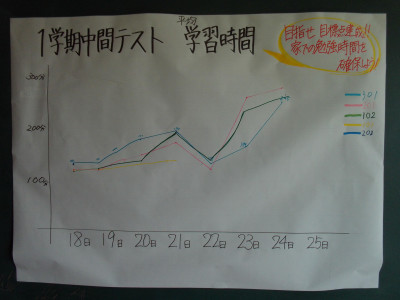 平均
1学期中間テスト 学習時間
目指せ 目標点達成!!
家での勉強時間を
確保しよう!
300分
200分
100分
101
102
202
18日 19日 20日 21日 22日 23日 24日 25日